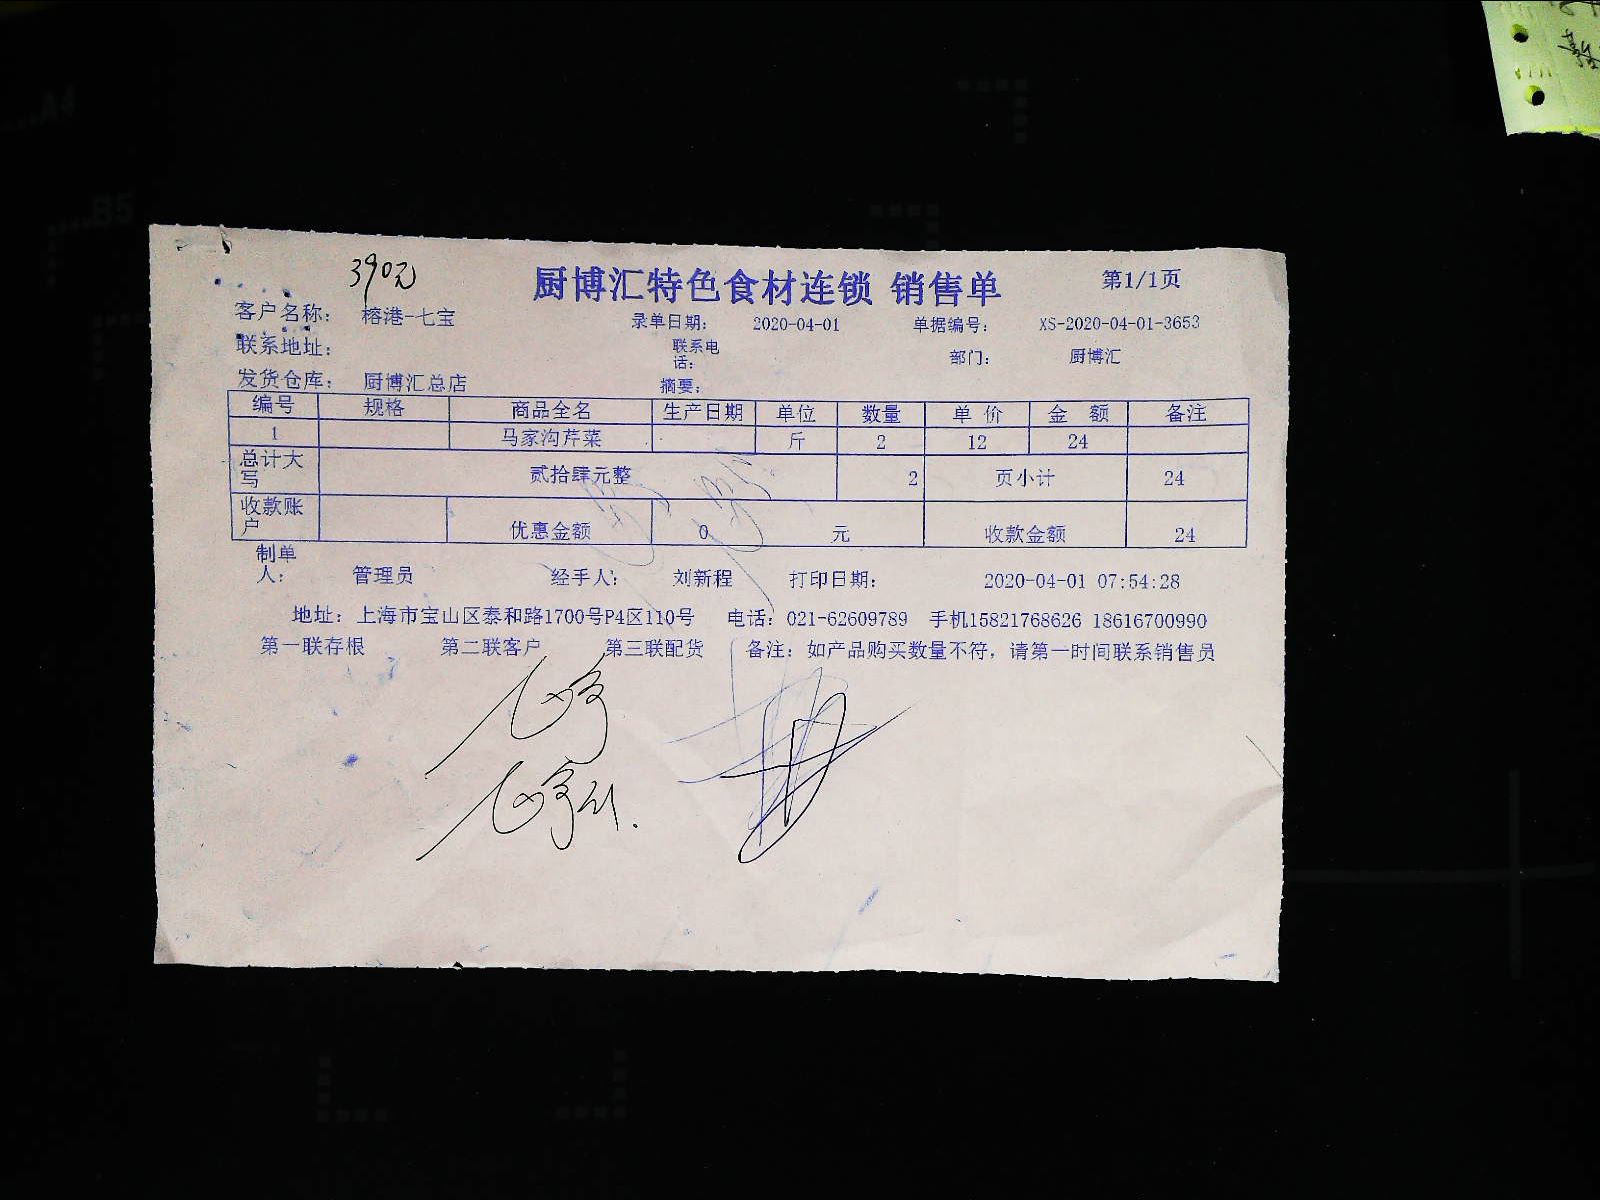 390元
厨博汇特色食材连锁 销售单 第1/1页
客户名称： 榕港-七宝 录单日期： 2020-04-01 单据编号： XS-2020-04-01-3653
联系地址： 联系电话： 部门： 厨博汇
发货仓库： 厨博汇总店 摘要：
编号 规格 商品全名 生产日期 单位 数量 单价 金额 备注
1 马家沟芹菜 斤 2 12 24
总计大写 贰拾肆元整 2 页小计 24
收款账户 优惠金额 0 元 收款金额 24
制单人： 管理员 经手人： 刘新程 打印日期： 2020-04-01 07:54:28
地址：上海市宝山区泰和路1700号P4区110号 电话：021-62609789 手机15821768626 18616700990
第一联存根 第二联客户 第三联配货 备注：如产品购买数量不符，请第一时间联系销售员